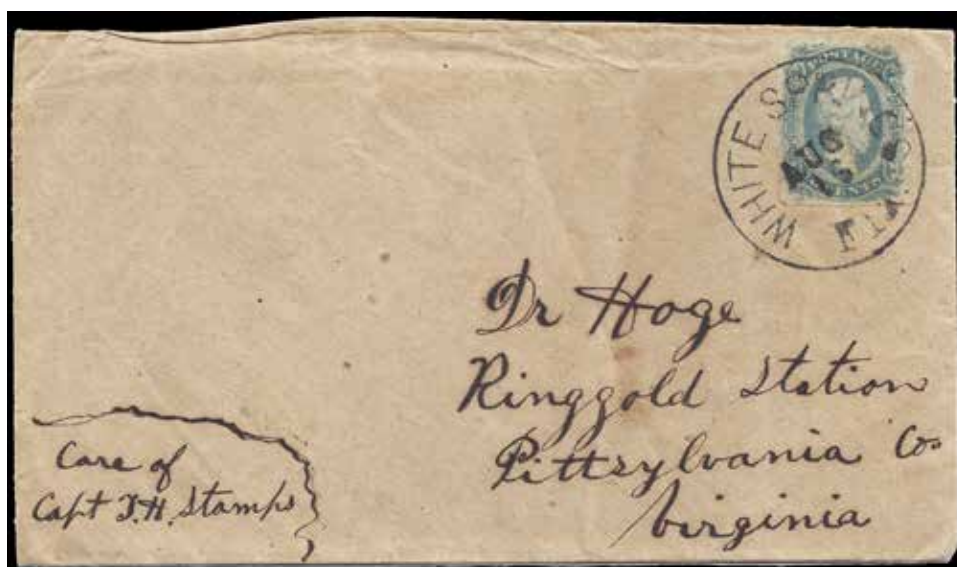 WHITE
AUG
Dr Hoge
Ringgold Station
Pittsylvania Co
Virginia
Care of
Capt T.H. Stamps